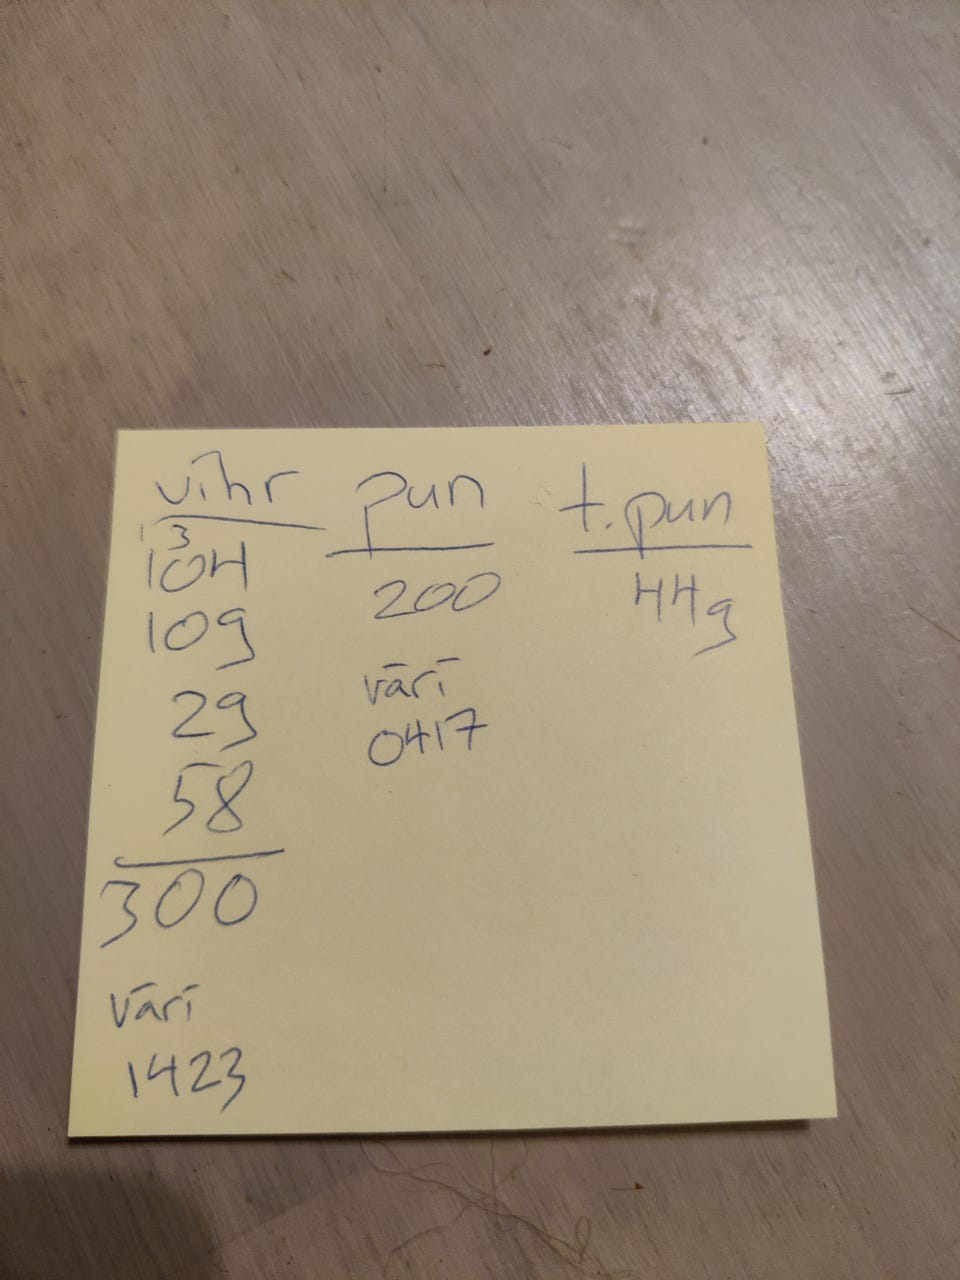 vihr
13
104
109
29
58
300
väri
1423
pun
200
väri
0417
t.pun
44g